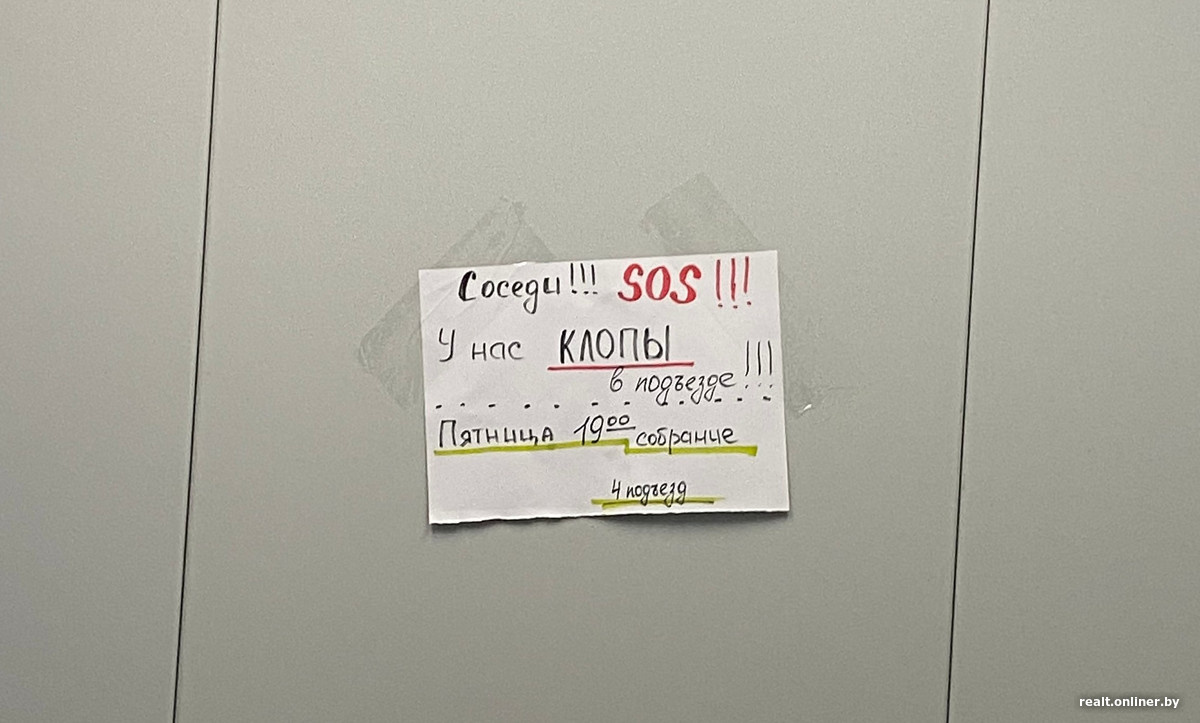 Соседи!!! SOS!!!
У нас КЛОПЫ
в подъезде!!!
Пятница 19⁰⁰ собрание
4 подъезд
realt.onliner.by